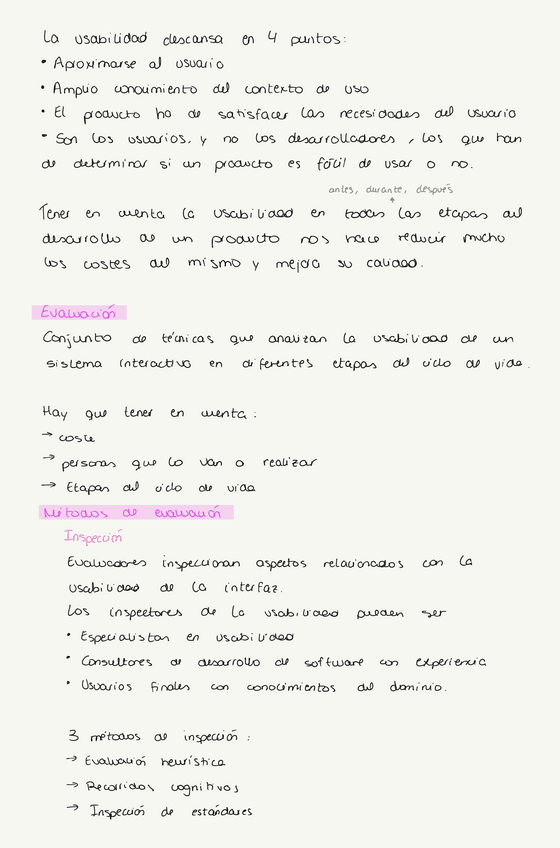 La usabilidad descansa en 4 puntos:
• Aproximarse al usuario
• Amplio conocimiento del contexto de uso
• El producto ha de satisfacer las necesidades del usuario
• Son los usuarios, y no los desarrolladores, los que han
de determinar si un producto es fácil de usar o no.
antes, durante, después
Tener en cuenta la usabilidad en todas las etapas del
desarrollo de un producto nos hace reducir mucho
los costes del mismo y mejora su calidad.
Evaluación
Conjunto de técnicas que analizan la usabilidad de un
sistema interactivo en diferentes etapas del ciclo de vida.
Hay que tener en cuenta:
→ coste
→ personas que lo van a realizar
→ Etapas del ciclo de vida
Métodos de evaluación
Inspección
Evaluadores inspeccionan aspectos relacionados con la
usabilidad de la interfaz.
Los inspectores de la usabilidad pueden ser
• Especialistas en usabilidad
• Consultores de desarrollo de software con experiencia
• Usuarios finales con conocimientos del dominio.
3 métodos de inspección:
→ Evaluación heurística
→ Recorridos cognitivos
→ Inspección de estándares